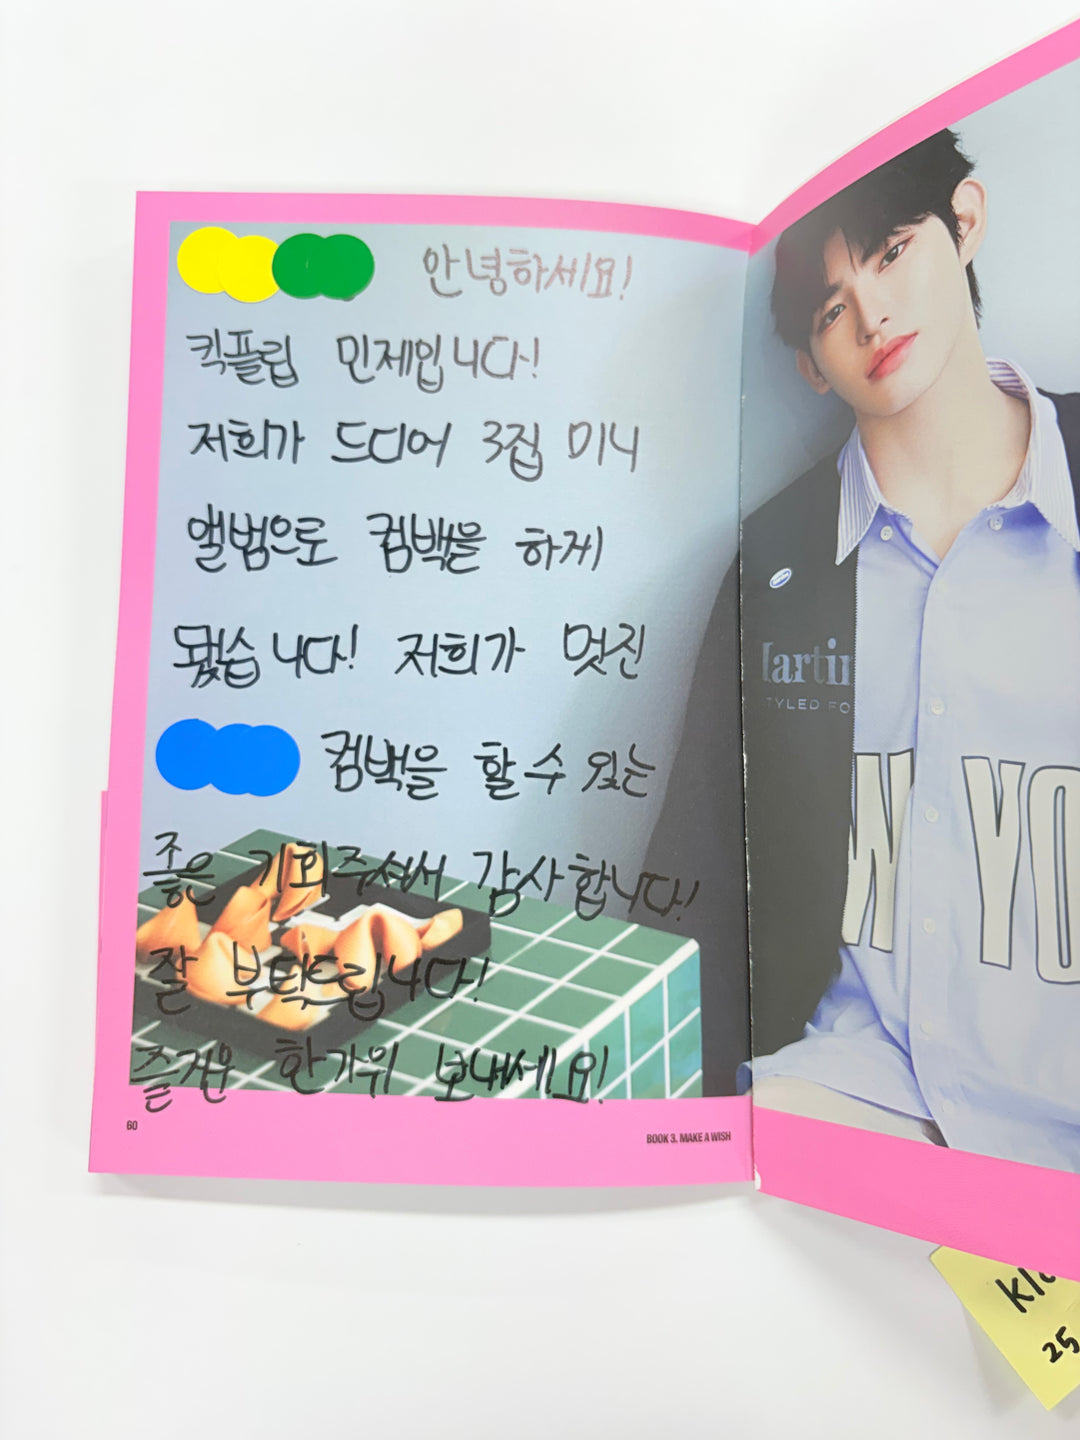 안녕하세요!
킥플립 민제입니다!
저희가 드디어 3집 미니
앨범으로 컴백을 하게
됐습니다! 저희가 멋진
컴백을 할 수 있는
좋은 기회주셔서 감사합니다!
잘 부탁드립니다!
즐거운 한가위 보내세요!
60
BOOK 3. MAKE A WISH
artin
TYLED FO
W YO
25